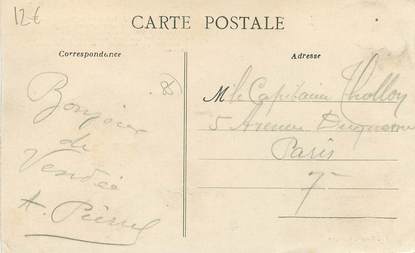 12€
CARTE POSTALE
Correspondance
Adresse
Bonjour
de
Vendée
A. Pierre
M le Capitaine Thollon
5 Avenue Duquesne
Paris
7